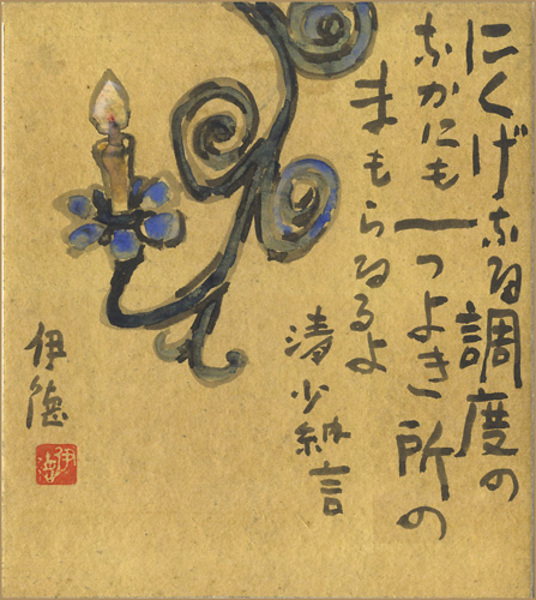 にくげなる調度の
なかにも一つよき所の
まもらるるよ
清少納言
伊